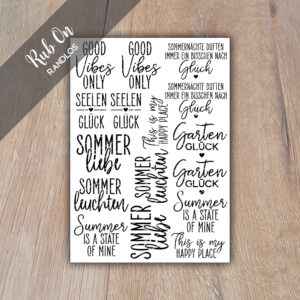 Rub On
RANDLOS
GOOD
Vibes
ONLY
GOOD
Vibes
ONLY
SOMMERNÄCHTE DUFTEN
IMMER EIN BISSCHEN NACH
Glück
SEELEN
GLÜCK
SEELEN
GLÜCK
SOMMERNÄCHTE DUFTEN
IMMER EIN BISSCHEN NACH
Glück
This is my
HAPPY PLACE
SOMMER
liebe
Garten
GLÜCK
SOMMER
leuchten
SOMMER
liebe
SOMMER
leuchten
Garten
GLÜCK
Summer
IS A STATE
OF MINE
Summer
IS A STATE
OF MINE
This is my
HAPPY PLACE